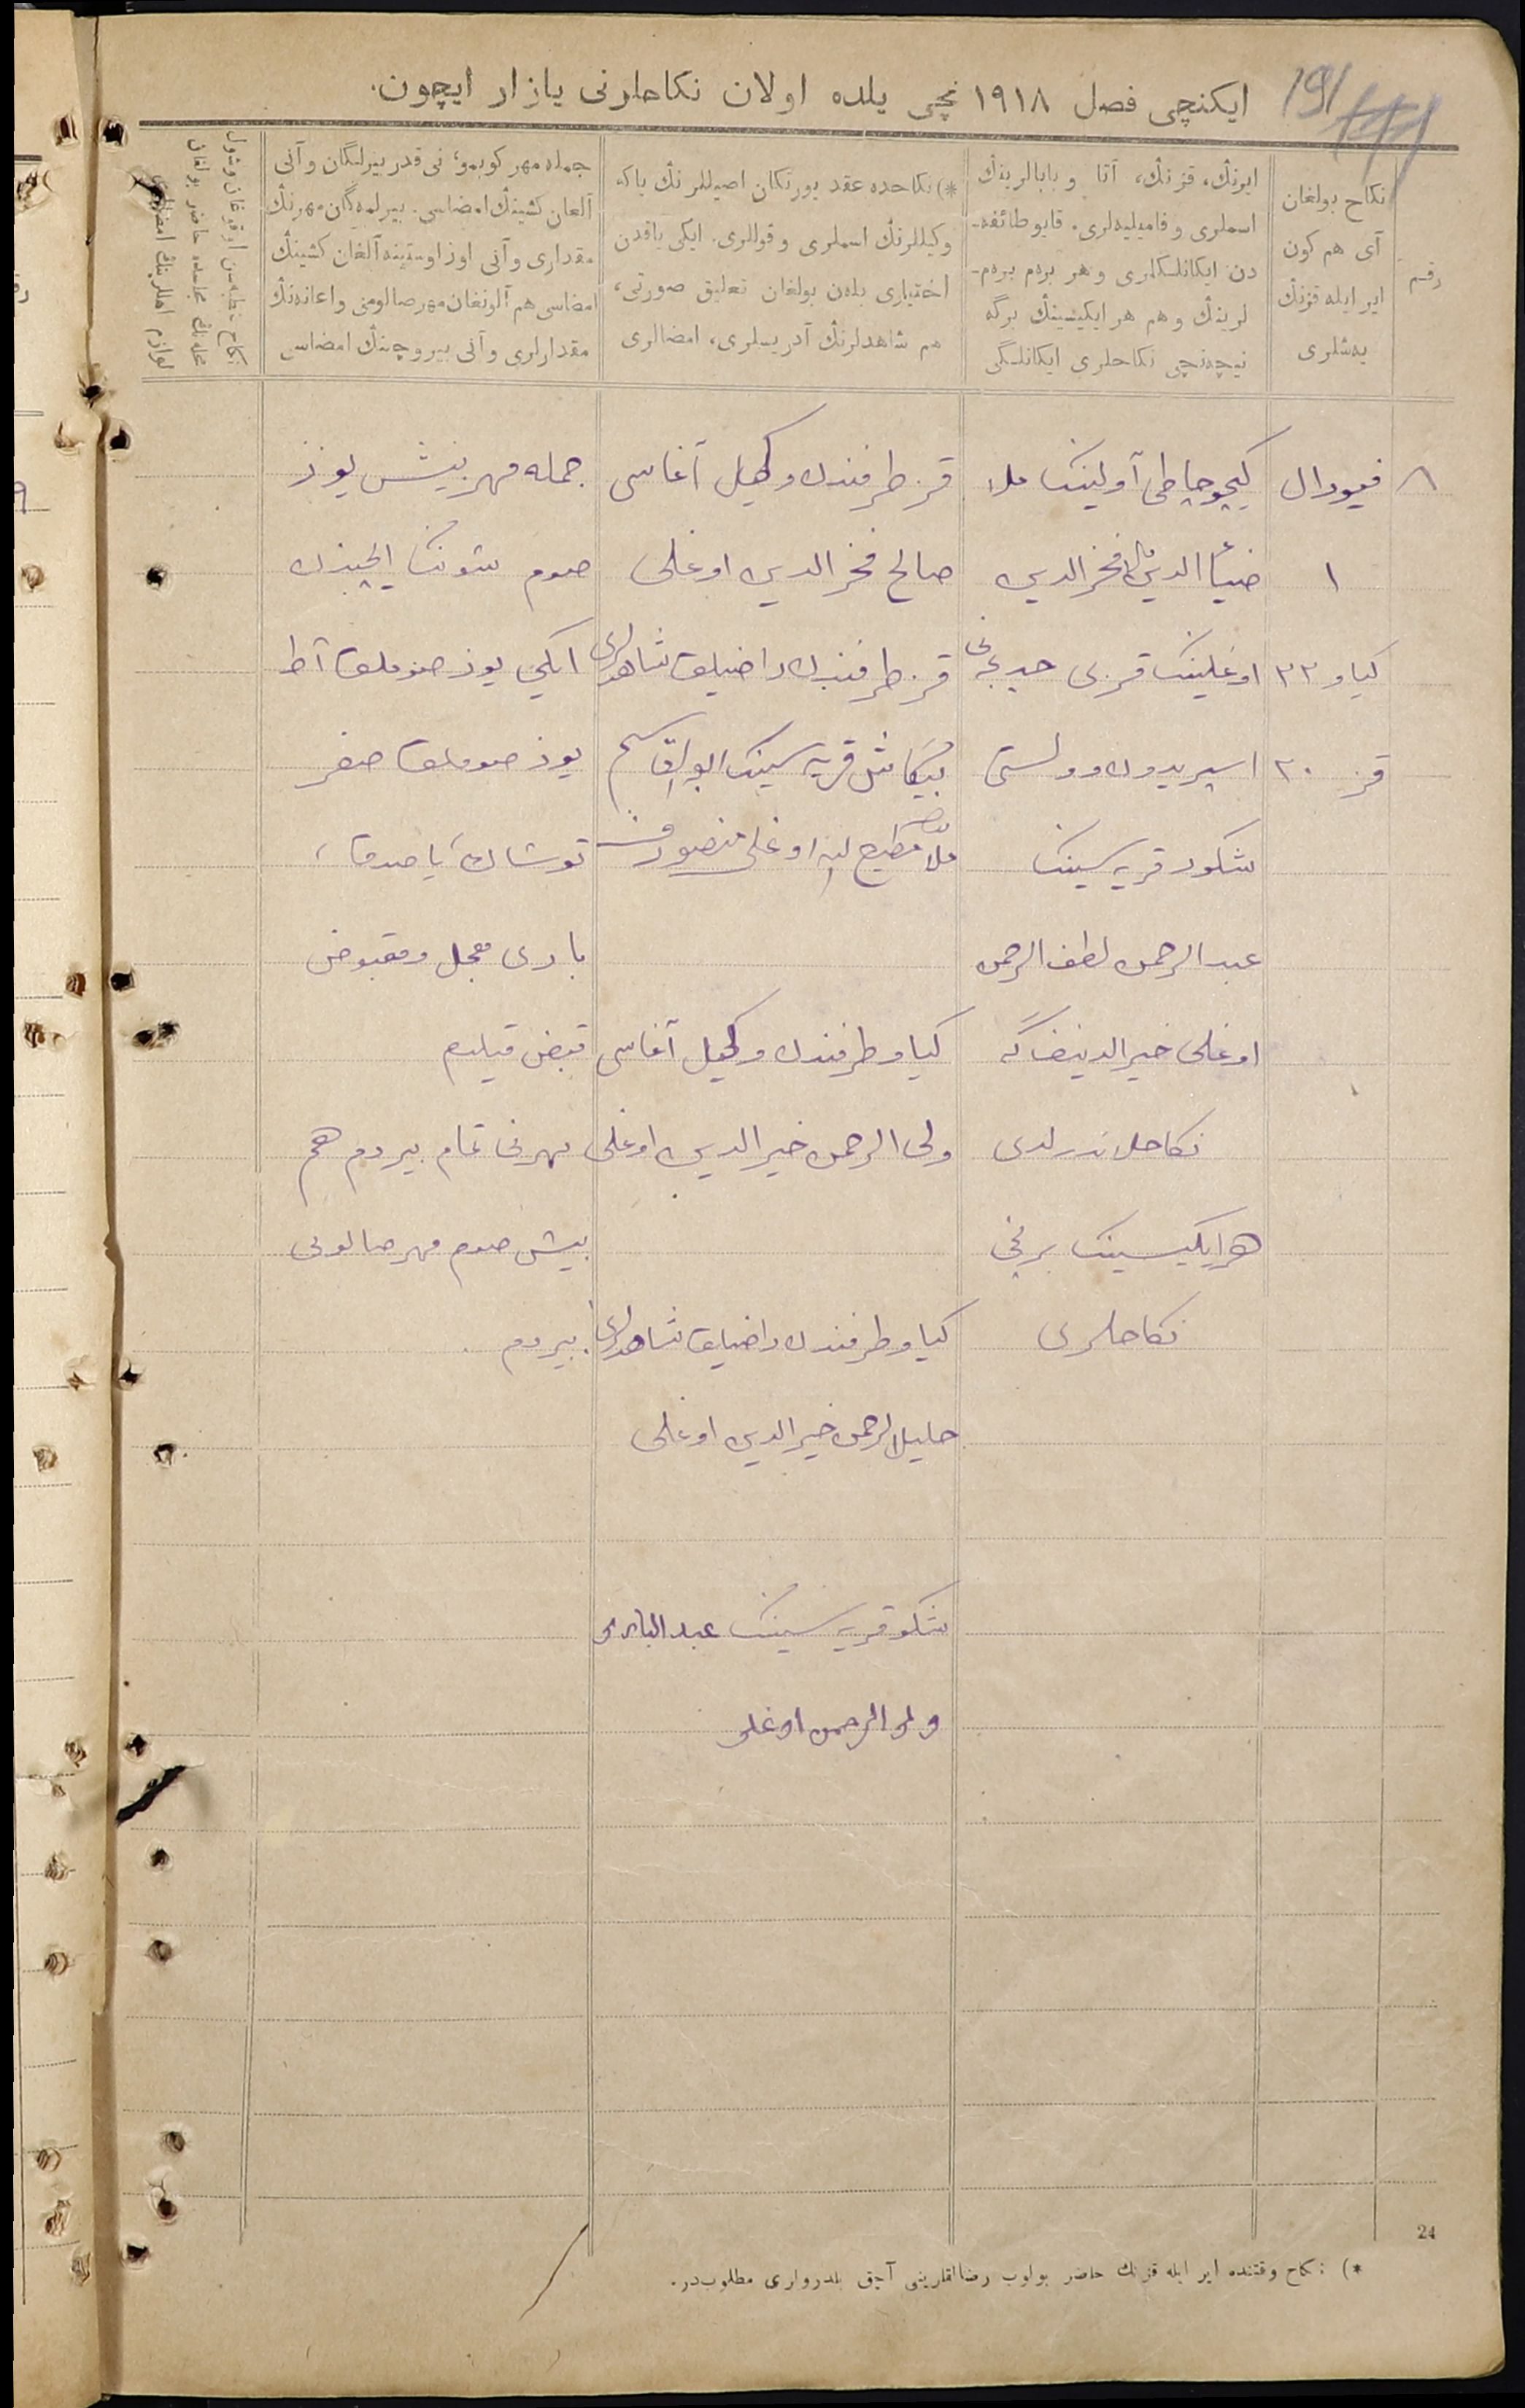 191
ایكنچی فصل ١٩١٨ نچی یلده اولان نكاحلرنی یازار ایچون.
رقم
نكاح بولغان
آی هم كون
ایر ایله قزنڭ
یه‌شلری
ایرنڭ، قزنڭ، آتا و بابالرینڭ
اسملری و فامیلیه‌لری. قایو طائفه‌-
دن ایكانلكلری و هر برم برم-
لرینڭ و هم هر ایكیسینڭ برگه
نیچه‌نچی نكاحلری ایكانلگی
*) نكاحده عقد یورتكان اصیللرنڭ یاكه
وكیللرنڭ اسملری و قوللری. ایكی یاقدن
اختیاری بله‌ن بولغان تعلیق صورتی،
هم شاهدلرنڭ آدریسلری، امضالری
جمله مهر كوبمو؛ نی قدر بیرلگان و آنی
آلغان كشینڭ امضاسی. بیرلمه‌گان مهرنڭ
مقداری و آنی اوز اوستینه آلغان كشینڭ
امضاسی هم آلونغان مهر صالومنی و اعانه‌نڭ
مقدارلری و آنی بیروچینڭ امضاسی
٨
فیورال
١
كیاو ٣٣
قز ٢٠
كیچو چاطی آولینڭ ملا
ضیاٴالدین فخرالدین
اوغلینڭ قزی خدیجه‌نی
اسپریدون وولستی
شكور قریه سینڭ
عبدالرحمن لطف الرحمن
اوغلی خیرالدینفگه
نكاحلاندرلدی
هر ایكیسینڭ برنچی
نكاحلری
قز طرفندن وكیل آغاسی
صالح فخرالدین اوغلی
قز طرفندن راضیلق شاهدلری
بیكاش قریه سینڭ ابوالقاسم
ملا مطیع الله اوغلی منصورف
كیاو طرفندن وكیل آغاسی
ولی الرحمن خیرالدین اوغلی
كیاو طرفندن راضیلق شاهدلری
خلیل الرحمن خیرالدین اوغلی
شكو قریه سینڭ عبدالباری
ولی الرحمن اوغلی
جمله مهر بیش یوز
صوم شونڭ ایچندن
ایكی یوز صوملق آط
یوز صوملق صغر
توشاك یاصدق،
باری معجل و مقبوض
قبض قیلدم
مهرنی تمام بیردم هم
بیش صوم مهر صالومی
بیردم
24
*) نكاح وقتنده ایر ایله قزنڭ حاضر بولوب رضالقلرینی آچق بلدرولری مطلوب‌در.